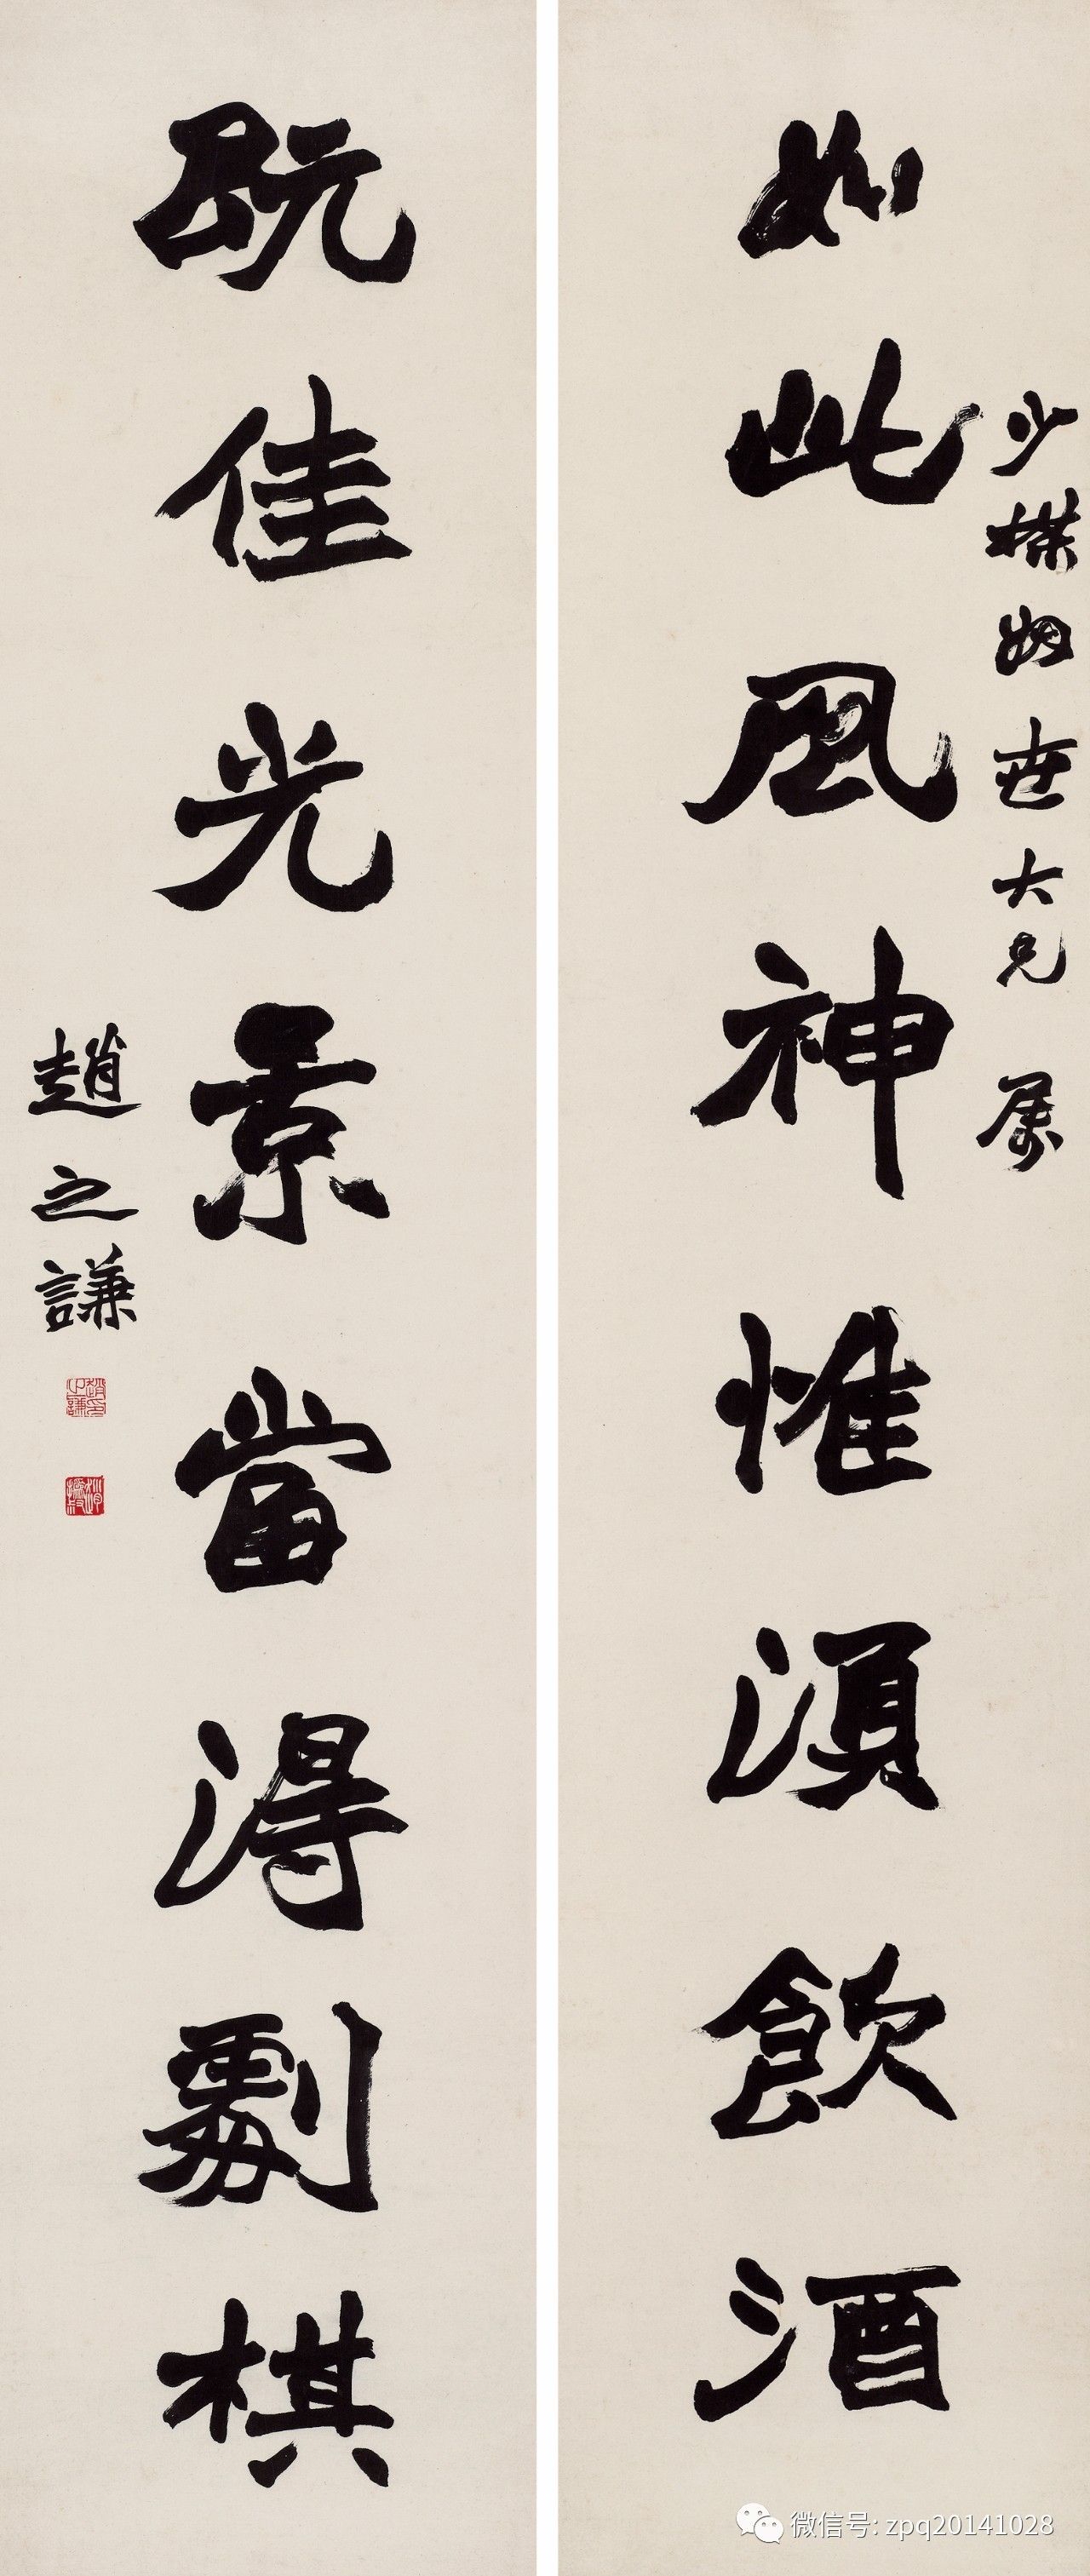 少楳姻世大兄屬
如此風神惟須飲酒
既佳光景當得劇棋
趙之謙
趙印之謙
趙撝叔
微信号: zpq20141028